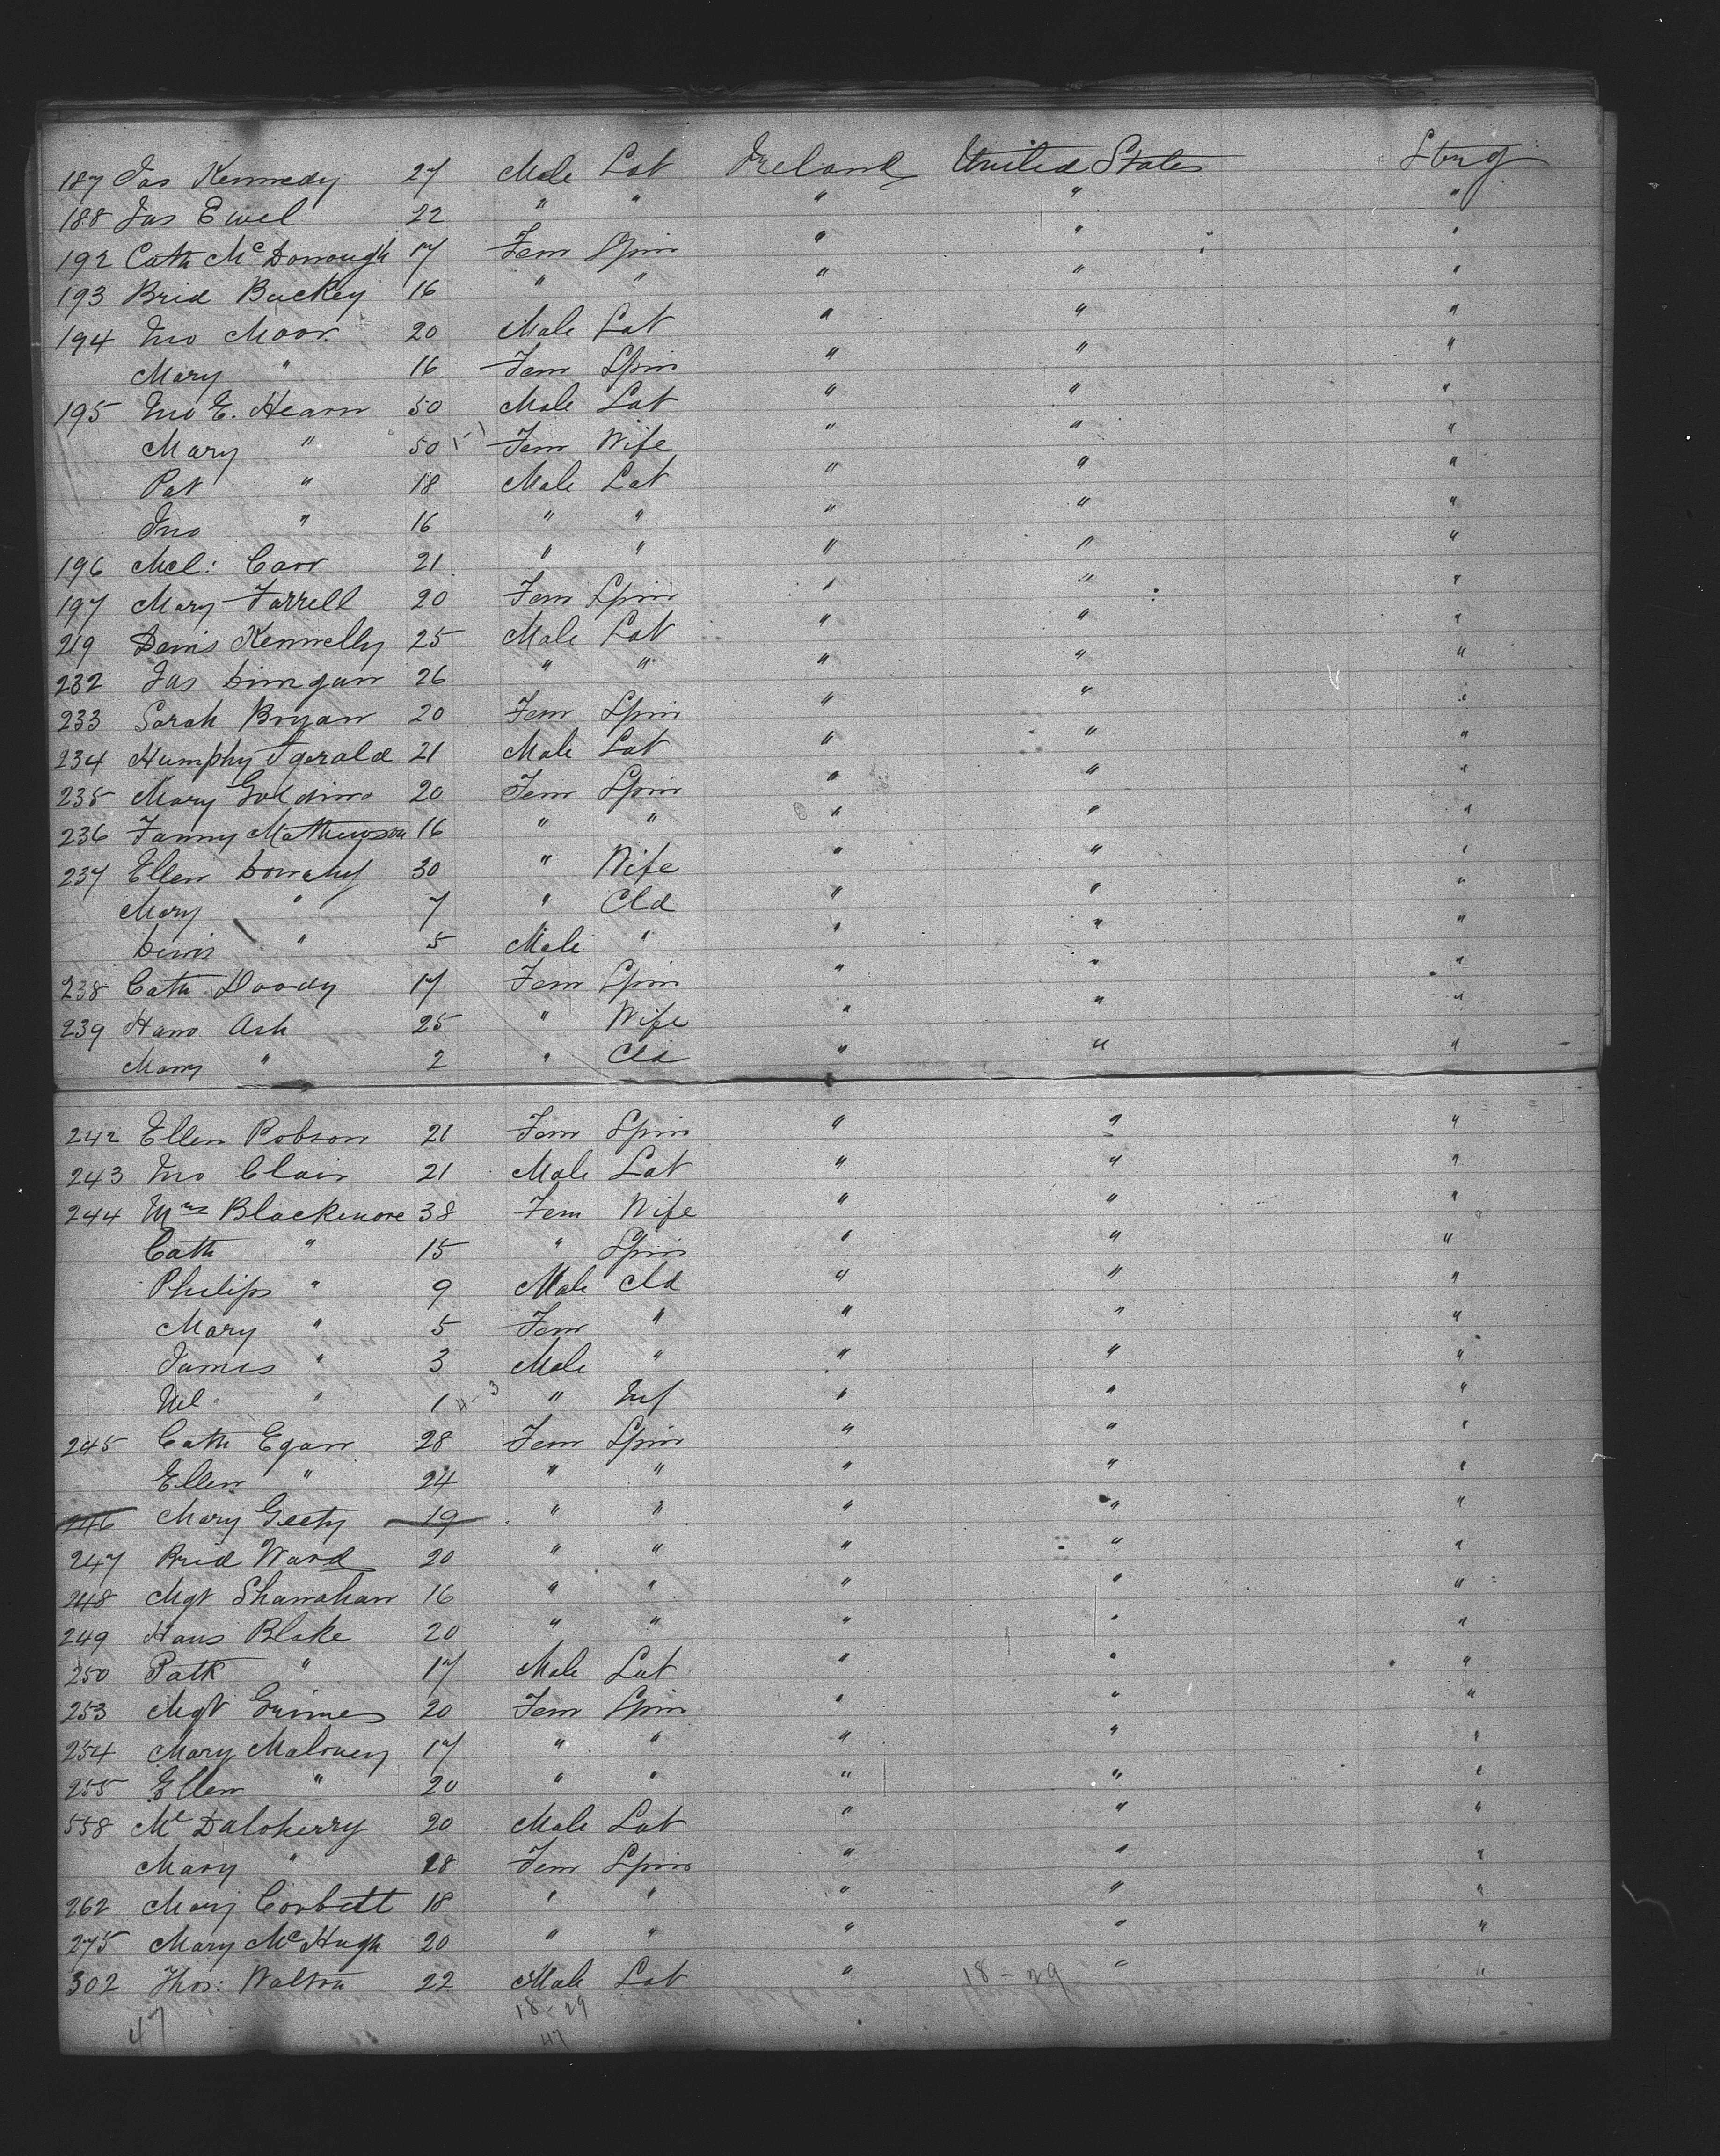 187 Jas Kennedy 27 Male Lab Ireland United States Stng
188 Jas Ewel 22 " " " " "
192 Cath McDonough 17 Fem Spin " " "
193 Brid Buckey 16 " " " " "
194 Jno Moor 20 Male Lab " " "
Mary " 16 Fem Spin " " "
195 Jno E. Hearn 50 Male Lab " " "
Mary " 50 Fem Wife " " "
Pat " 18 Male Lab " " "
Jno " 16 " " " " "
196 Mcl: Carr 21 " " " " "
197 Mary Farrell 20 Fem Spin " " "
219 Denis Kennelly 25 Male Lab " " "
232 Jas Dinigan 26 " " " " "
233 Sarah Bryan 20 Fem Spin " " "
234 Humphy Fgerald 21 Male Lab " " "
235 Mary Golding 20 Fem Spin " " "
236 Fanny Mathewson 16 " " " " "
237 Ellen 30 " Wife " " "
Mary " 7 " Cld " " "
Denis " 5 Male " " " "
238 Cath Doody 17 Fem Spin " " "
239 Hano Ash 25 " Wife " " "
Mary " 2 " Cld " " "
242 Ellen Robson 21 Fem Spin " " "
243 Jno Clair 21 Male Lab " " "
244 Mrs Blackmore 38 Fem Wife " " "
Cath " 15 " Spin " " "
Philips " 9 Male Cld " " "
Mary " 5 Fem " " " "
James " 3 Male " " " "
Ml " 1 " Inf " " "
245 Cath Egan 28 Fem Spin " " "
Ellen " 24 " " " " "
246 Mary Geety 19 " " " " "
247 Brid Ward 20 " " " " "
248 Mgt Shanahan 16 " " " " "
249 Hans Blake 20 " " " " "
250 Patk " 17 Male Lab " " "
253 Mgt Grimes 20 Fem Spin " " "
254 Mary Maloney 17 " " " " "
255 Ellen " 20 " " " " "
558 Ml Daloherry 20 Male Lab " " "
Mary " 18 Fem Spin " " "
262 Mary Corbett 18 " " " " "
275 Mary McHugh 20 " " " " "
302 Thos: Walton 22 Male Lab " " "
18-29
18-29
47
47